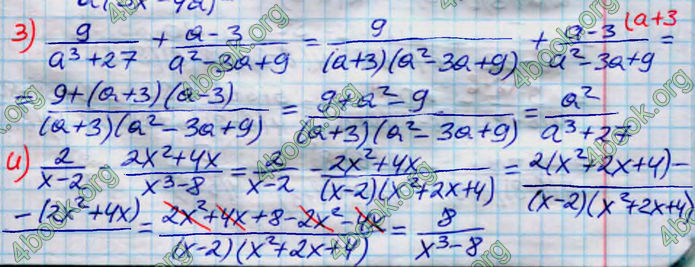 3) 9/(a³+27) + (a-3)/(a²-3a+9) = 9/((a+3)(a²-3a+9)) + (a-3)/(a²-3a+9) (a+3 =
= (9+(a+3)(a-3))/((a+3)(a²-3a+9)) = (9+a²-9)/((a+3)(a²-3a+9)) = a²/(a³+27)
4) 2/(x-2) - (2x²+4x)/(x³-8) = 2/(x-2) - (2x²+4x)/((x-2)(x²+2x+4)) = (2(x²+2x+4)-)/((x-2)(x²+2x+4))
-(2x²+4x) = (2x²+4x+8-2x²-4x)/((x-2)(x²+2x+4)) = 8/(x³-8)
4book.org